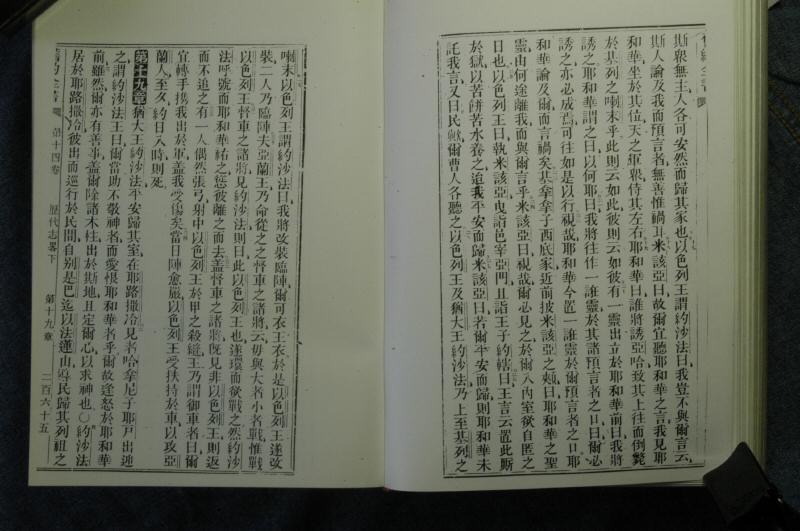 斯衆無主人各可安然而歸其家也以色列王謂約沙法曰我豈不與爾言云
斯人論及我而預言者無善惟禍耳米該亞曰故爾宜聽耶和華之言我見耶
和華坐於其位天之軍衆侍其左右耶和華曰誰將誘亞哈致其上往而倒斃
於基列之喇末乎此則云如此彼則云如彼有一靈出立於耶和華前曰我將
誘之耶和華謂之曰以何耶曰我將往作一誑靈於其諸預言者之口曰爾必
誘之亦必成焉可往如是以行視哉耶和華今置一誑靈於爾預言者之口耶
和華論及爾而言禍矣基拿拿子西底家近前披米該亞之頰曰耶和華之聖
靈由何途離我而與爾言乎米該亞曰視哉爾必見之於爾入內室欲自匿之
日也以色列王曰執米該亞曳詣邑宰亞們且詣王子約轄曰王言云置此厮
於獄以苦餅苦水養之迨我平安而歸米該亞曰若爾平安而歸則耶和華未
託我言又曰民歟爾曹人各聽之以色列王及猶大王約沙法乃上至基列之
喇末以色列王謂約沙法曰我將改裝臨陣爾可衣王衣於是以色列王遂改
裝二人乃臨陣夫亞蘭王乃命從之之督車之諸將云毋與大者小者戰惟戰
以色列王督車之諸將見約沙法則曰此以色列王也遂環而欲戰之然約沙
法呼號而耶和華祐之惄彼離之而去蓋督車之諸將既見非以色列王則返
而不追之有一人偶然張弓射中以色列王於甲之殺縫王乃謂御車者曰爾
宜轉手攜我出於軍蓋我受傷矣當日陣愈嚴以色列王受扶持於車以攻亞
蘭人至夕約日入時則死
第十九章猶大王約沙法平安歸其室在耶路撒冷見者哈拿尼子耶戶出迎
之謂約沙法王曰爾當助不敬神者而愛恨耶和華者乎爾故逢怒於耶和華
前雖然爾亦有善事蓋爾除諸木柱出於斯地且定爾心以求神也〇約沙法
居於耶路撒冷彼出而巡行於民間自别是巴迄以法蓮山導民歸其列祖之
第十四卷 歷代志畧下 第十九章 二百六十五